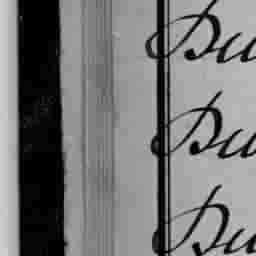 Bu
Bu
Bu